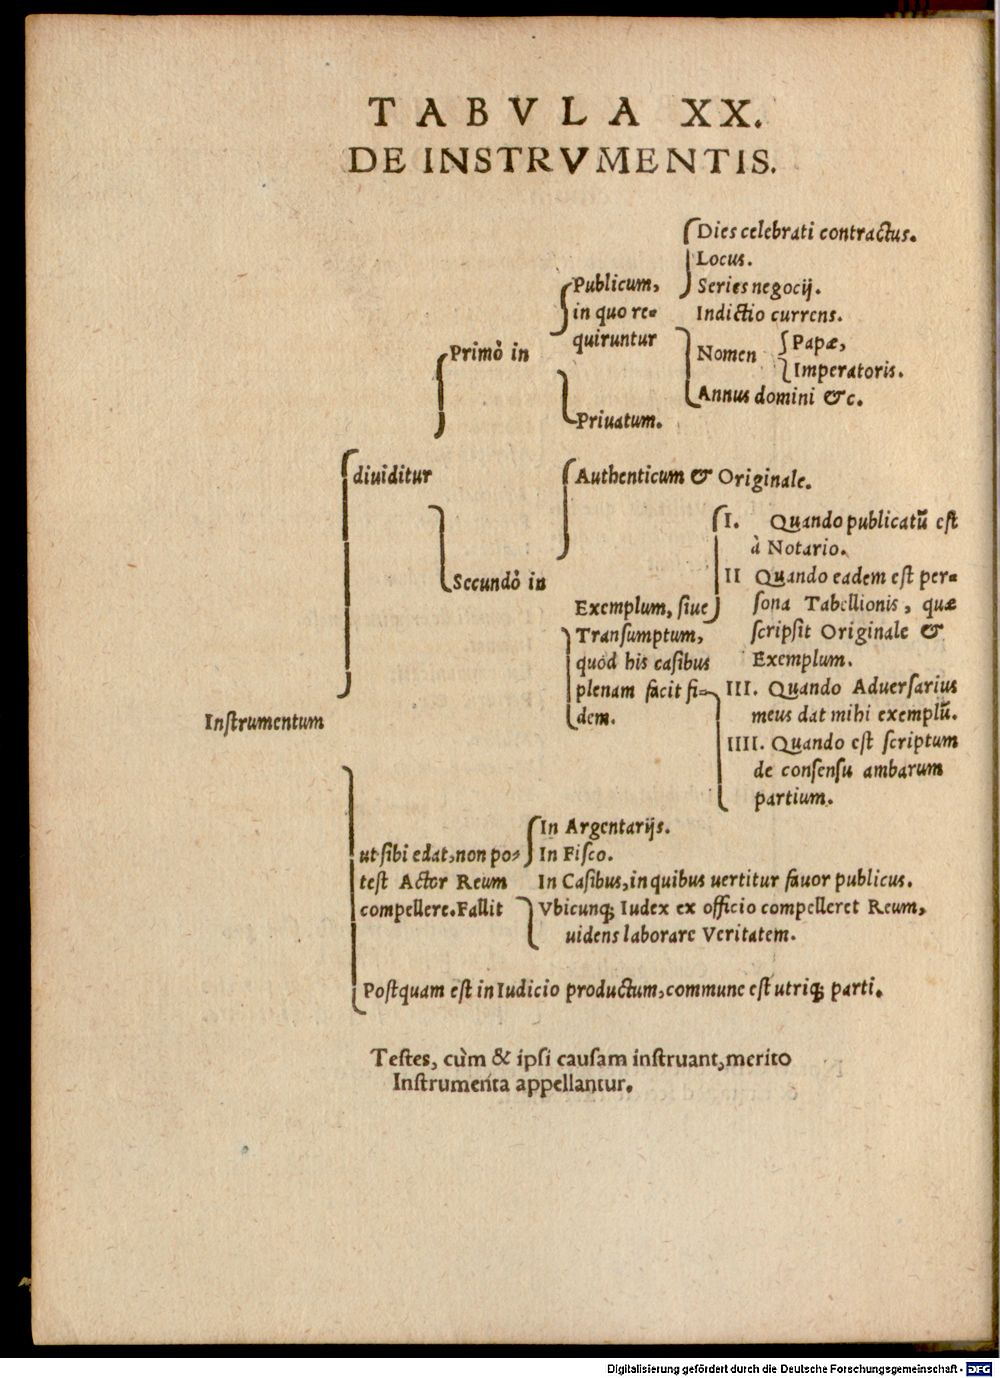 TABVLA XX.
DE INSTRVMENTIS.
Dies celebrati contractus.
Locus.
Publicum,
Series negocij.
in quo re=
Indictio currens.
quiruntur
Primò in
Nomen
Papæ,
Imperatoris.
Annus domini &c.
Priuatum.
diuiditur
Authenticum & Originale.
I. Quando publicatũ est
à Notario.
Secundò in
II Quando eadem est per=
Exemplum, siue
sona Tabellionis, quæ
Transumptum,
scripsit Originale &
quod his casibus
Exemplum.
plenam facit fi=
III. Quando Aduersarius
dem.
meus dat mihi exemplũ.
Instrumentum
IIII. Quando est scriptum
de consensu ambarum
partium.
In Argentarijs.
ut sibi edat, non po=
In Fisco.
test Actor Reum
In Casibus, in quibus uertitur fauor publicus.
compellere. Fallit
Vbicunq; Iudex ex officio compelleret Reum,
uidens laborare Veritatem.
Postquam est in Iudicio productum, commune est utriq; parti.
Testes, cùm & ipsi causam instruant, merito
Instrumenta appellantur.
Digitalisierung gefördert durch die Deutsche Forschungsgemeinschaft - DFG